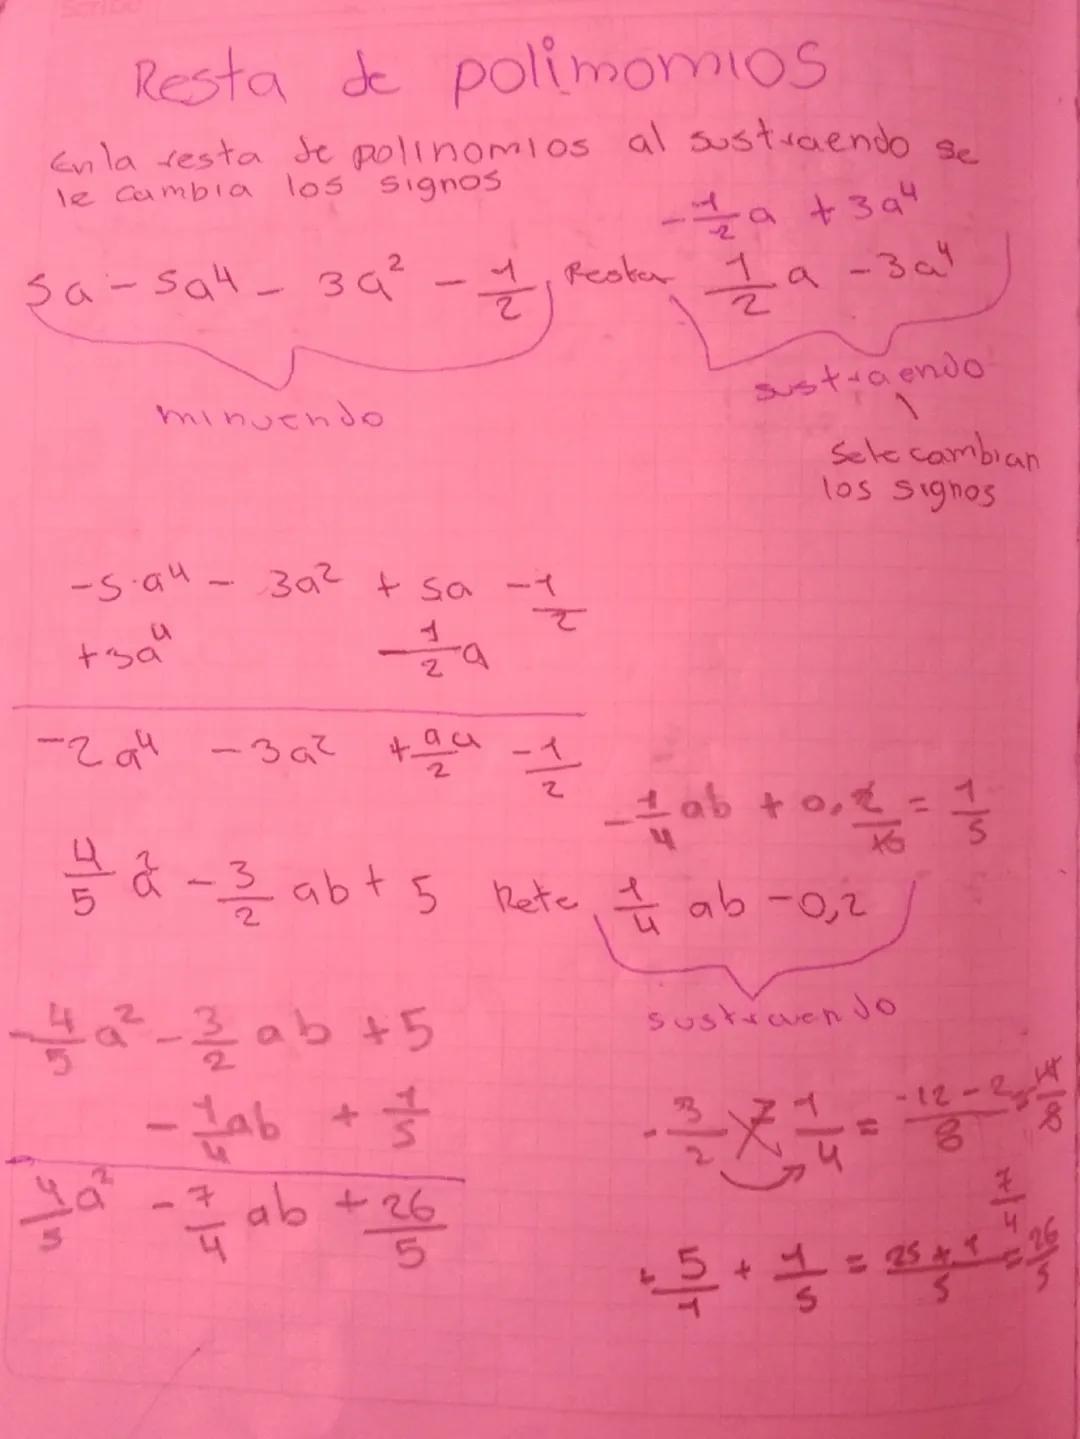 Resta de polimomios
En la resta de polinomios al sustraendo se
le cambia los signos
-1/2 a + 3a⁴
5a - 5a⁴ - 3a² - 1/2, Restar 1/2 a - 3a⁴
minuendo
sustraendo
Se le cambian
los signos
-5a⁴ - 3a² + 5a - 1/2
+3a⁴ - 1/2 a
-2a⁴ - 3a² + 9a/2 - 1/2
-1/4 ab + 0,2/10 = 1/5
4/5 a² - 3/2 ab + 5 Rete 1/4 ab - 0,2
sustraendo
-4/5 a² - 3/2 ab + 5
-1/4 ab + 1/5
4/5 a² - 7/4 ab + 26/5
-3/2 1/4 = -12-2/8 = 14/8
7/4
+5/1 + 1/5 = 25+1/5 = 26/5